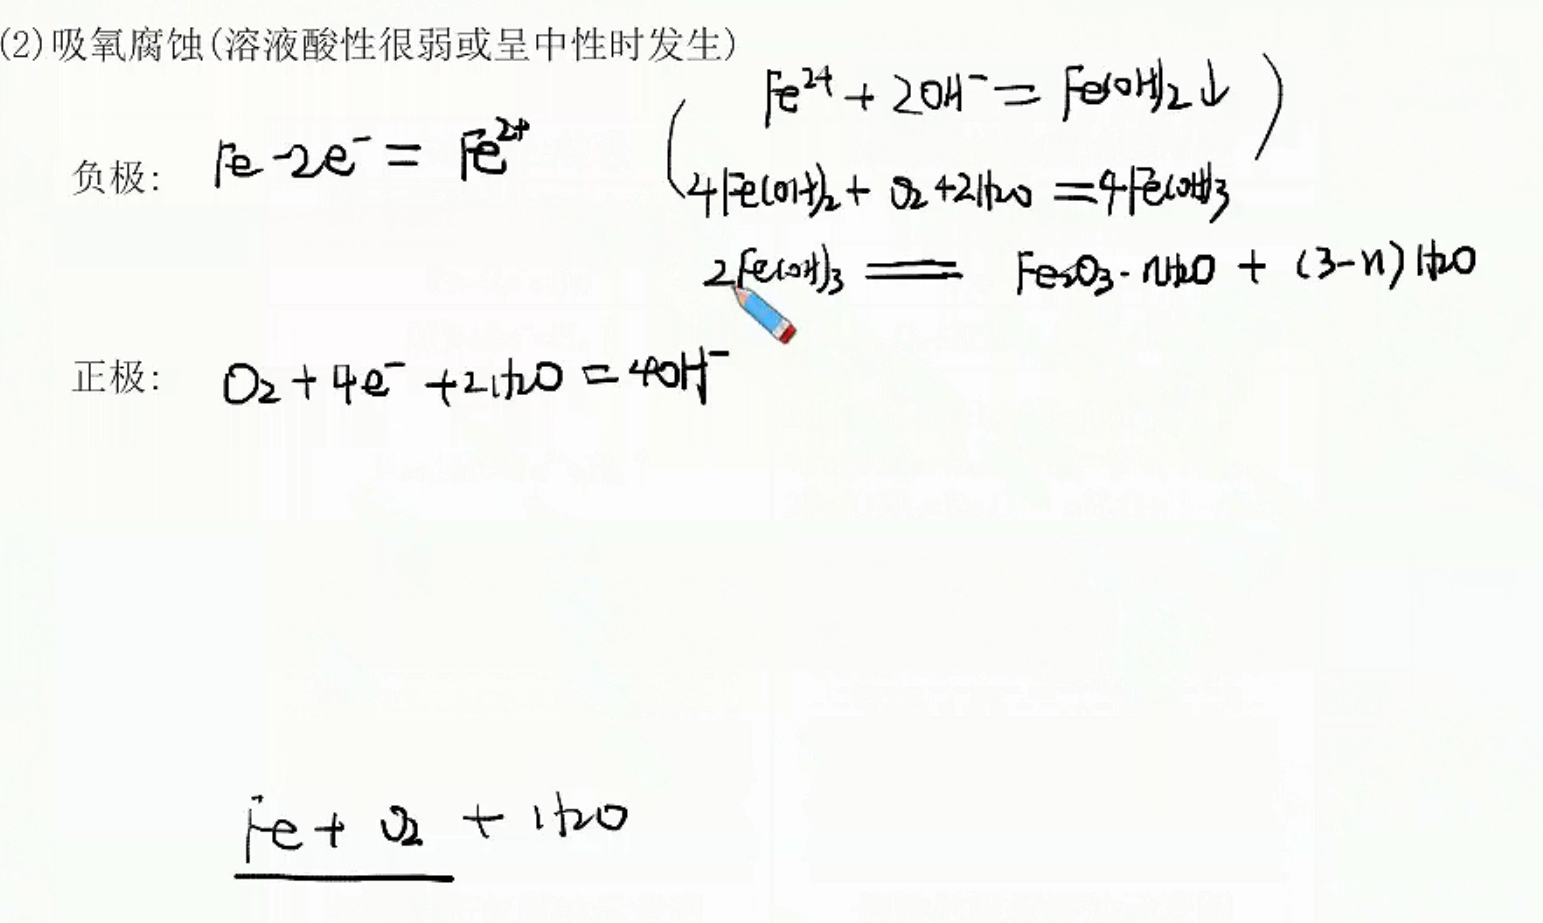 (2)吸氧腐蚀(溶液酸性很弱或呈中性时发生)
( Fe²⁺ + 2OH⁻ = Fe(OH)₂↓ )
负极: Fe-2e⁻ = Fe²⁺
4Fe(OH)₂ + O₂ + 2H₂O = 4Fe(OH)₃
2Fe(OH)₃ = Fe₂O₃·nH₂O + (3-n)H₂O
正极: O₂ + 4e⁻ + 2H₂O = 4OH⁻
Fe + O₂ + H₂O